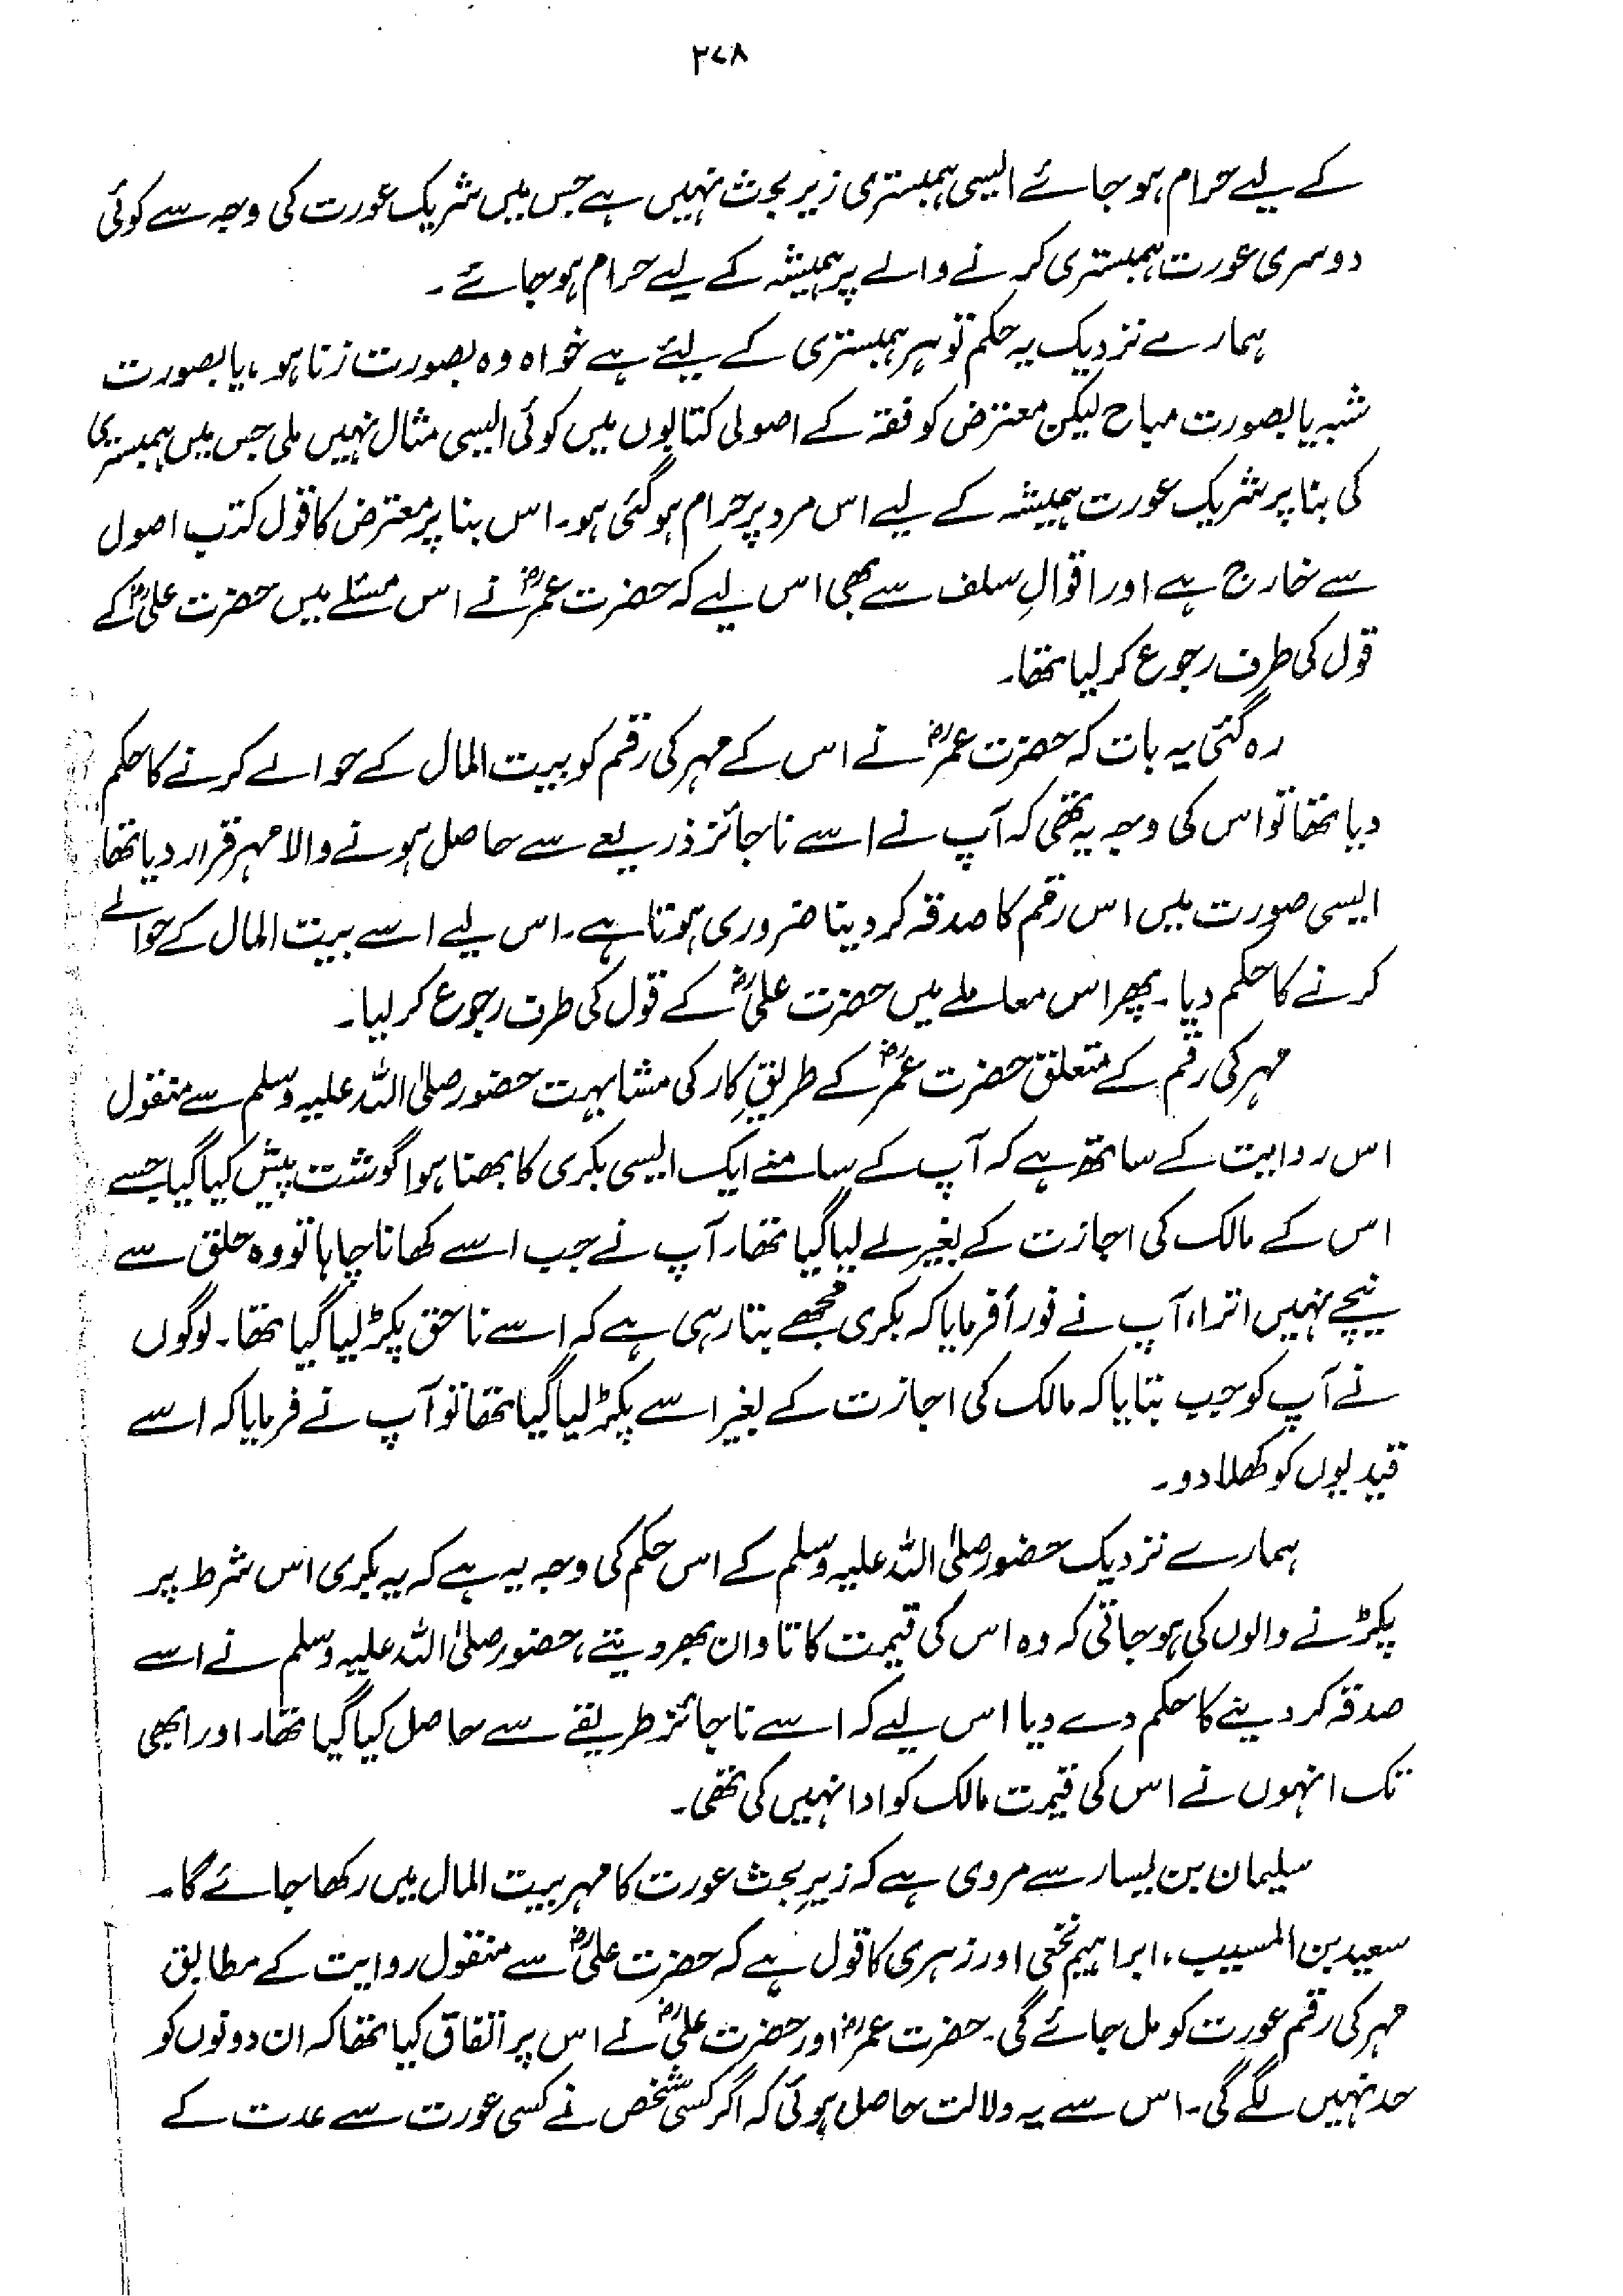 ۳۷۸
کے لیے حرام ہو جائے ایسی ہمبستری زیر بحث نہیں ہے جس میں شریک عورت کی وجہ سے کوئی
دوسری عورت ہمبستری کرنے والے پر ہمیشہ کے لیے حرام ہو جائے۔
ہمارے نزدیک یہ حکم تو ہر ہمبستری کے لیئے ہے خواہ وہ بصورت زنا ہو، یا بصورت
شبہ یا بصورت مباح لیکن معترض کو فقہ کے اصولی کتابوں میں کوئی ایسی مثال نہیں ملی جس میں ہمبستری
کی بنا پر شریک عورت ہمیشہ کے لیے اس مرد پر حرام ہو گئی ہو۔ اس بنا پر معترض کا قول کتب اصول
سے خارج ہے اور اقوالِ سلف سے بھی اس لیے کہ حضرت عمرؓ نے اس مسئلے میں حضرت علیؓ کے
قول کی طرف رجوع کر لیا تھا۔
رہ گئی یہ بات کہ حضرت عمرؓ نے اس کے مہر کی رقم کو بیت المال کے حوالے کرنے کا حکم
دیا تھا تو اس کی وجہ یہ تھی کہ آپ نے اسے ناجائز ذریعے سے حاصل ہونے والا مہر قرار دیا تھا
ایسی صورت میں اس رقم کا صدقہ کر دینا ضروری ہوتا ہے۔ اس لیے اسے بیت المال کے حوالے
کرنے کا حکم دیا۔ پھر اس معاملے میں حضرت علیؓ کے قول کی طرف رجوع کر لیا۔
مہر کی رقم کے متعلق حضرت عمرؓ کے طریقِ کار کی مشابہت حضور صلی اللہ علیہ وسلم سے منقول
اس روایت کے ساتھ ہے کہ آپ کے سامنے ایک ایسی بکری کا بھنا ہوا گوشت پیش کیا گیا جسے
اس کے مالک کی اجازت کے بغیر لے لیا گیا تھا۔ آپ نے جب اسے کھانا چاہا تو وہ حلق سے
نیچے نہیں اترا، آپ نے فوراً فرمایا کہ بکری مجھے بتا رہی ہے کہ اسے ناحق پکڑ لیا گیا تھا۔ لوگوں
نے آپ کو جب بتایا کہ مالک کی اجازت کے بغیر اسے پکڑ لیا گیا تھا تو آپ نے فرمایا کہ اسے
قیدیوں کو کھلا دو۔
ہمارے نزدیک حضور صلی اللہ علیہ وسلم کے اس حکم کی وجہ یہ ہے کہ یہ بکری اس شرط پر
پکڑنے والوں کی ہو جاتی کہ وہ اس کی قیمت کا تاوان بھر دیتے، حضور صلی اللہ علیہ وسلم نے اسے
صدقہ کر دینے کا حکم دے دیا اس لیے کہ اسے ناجائز طریقے سے حاصل کیا گیا تھا۔ اور ابھی
تک انہوں نے اس کی قیمت مالک کو ادا نہیں کی تھی۔
سلیمان بن یسار سے مروی ہے کہ زیرِ بحث عورت کا مہر بیت المال میں رکھا جائے گا۔
سعید بن المسیب، ابراہیم نخعی اور زہری کا قول ہے کہ حضرت علیؓ سے منقول روایت کے مطابق
مہر کی رقم عورت کو مل جائے گی۔ حضرت عمرؓ اور حضرت علیؓ نے اس پر اتفاق کیا تھا کہ ان دونوں کو
حد نہیں لگے گی۔ اس سے یہ دلالت حاصل ہوئی کہ اگر کسی شخص نے کسی عورت سے عدت کے